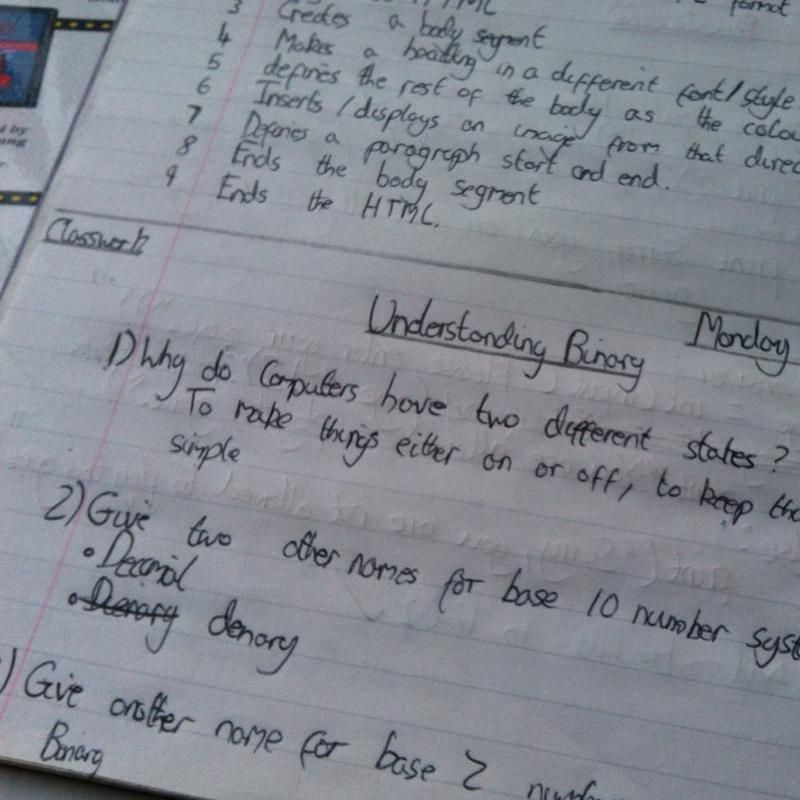 format
3 Creates a body segment
4 Makes a heading in a different font/style
5 defines the rest of the body as the colou
6 Inserts/displays an image from that direc
7 Defines a paragraph start and end.
8 Ends the body segment
9 Ends the HTML.
Classwork
Understanding Binary Monday
1) Why do Computers have two different states?
To make things either on or off, to keep
simple
2) Give two other names for base 10 number syst
• Decimal
• Denary denary
) Give another name for base 2 numb
Binary